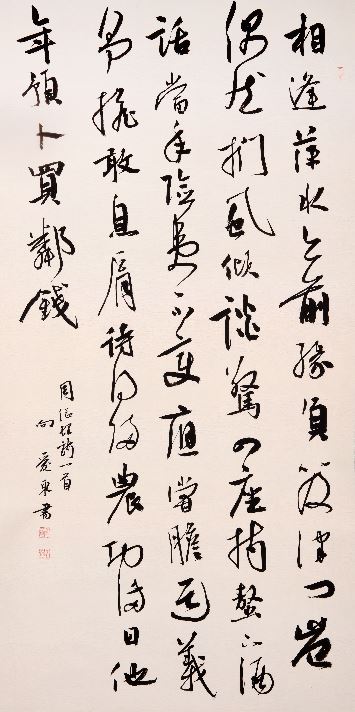 相逢萍水亦前緣負笈津門豈
偶然捫虱傾談驚四座持螯下酒
話當年險夷不變應嘗膽道義
爭擔敢息肩待得歸農功滿日他
年預卜買鄰錢
周總理詩一首
愛東書